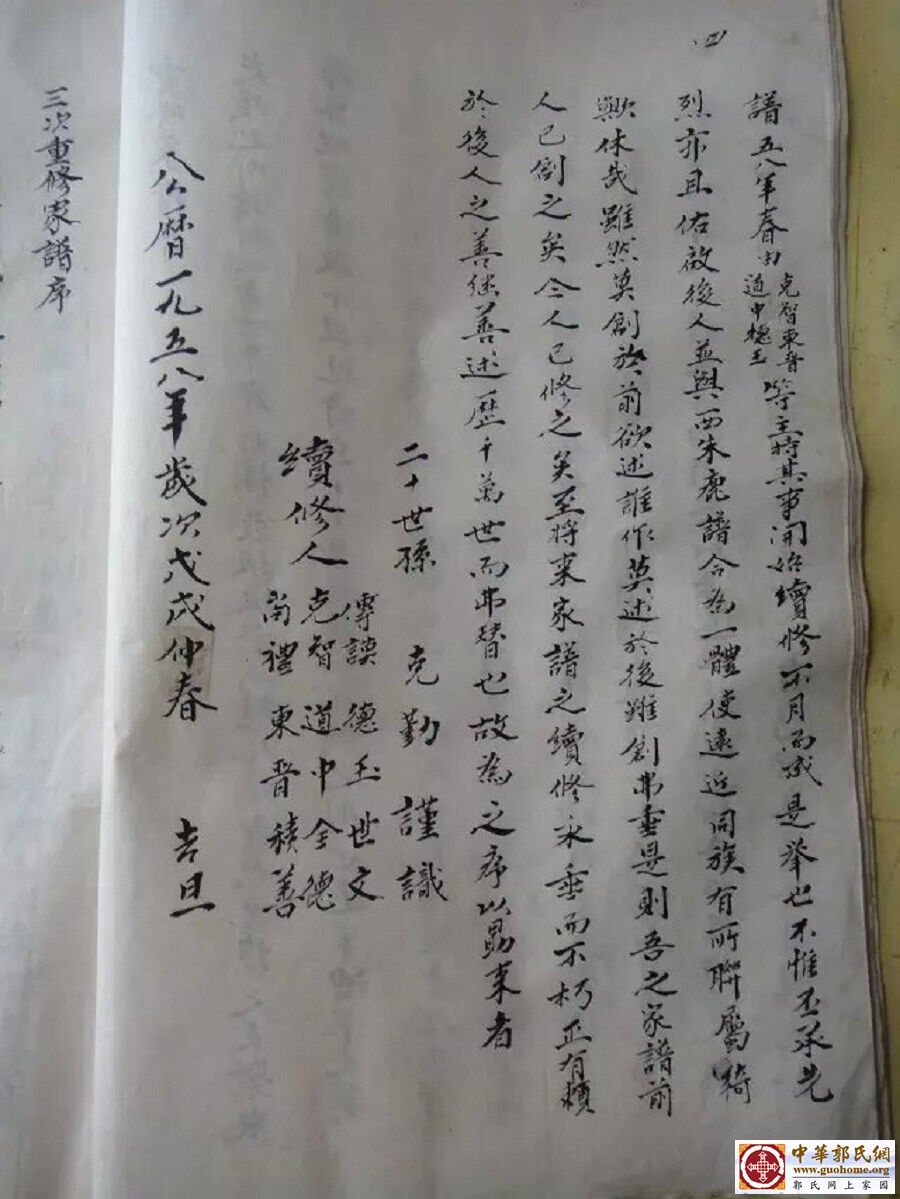 譜五八年春由克智東晋道中德玉等主持其事開始續修不月而成是举也不惟丕承先
烈亦且佑啟後人並與西朱鹿譜合為一體使遠近同族有所聯屬猗
歟休哉雖然莫創於前欲述誰作莫述於後雖創弗垂是則吾之家譜前
人已創之矣今人已修之矣至將来家譜之續修永垂而不朽正有賴
於後人之善継善述歷千萬世而弗替也故為之序以勗来者
二十世孫 克勤 謹識
傳謨 德玉 世文
續修人 克智 道中 全德
尚禮 東晋 積善
公曆一九五八年歲次戊戌仲春 吉旦
三次重修家譜序
中華郭氏網
www.guohome.org
郭氏网上家园